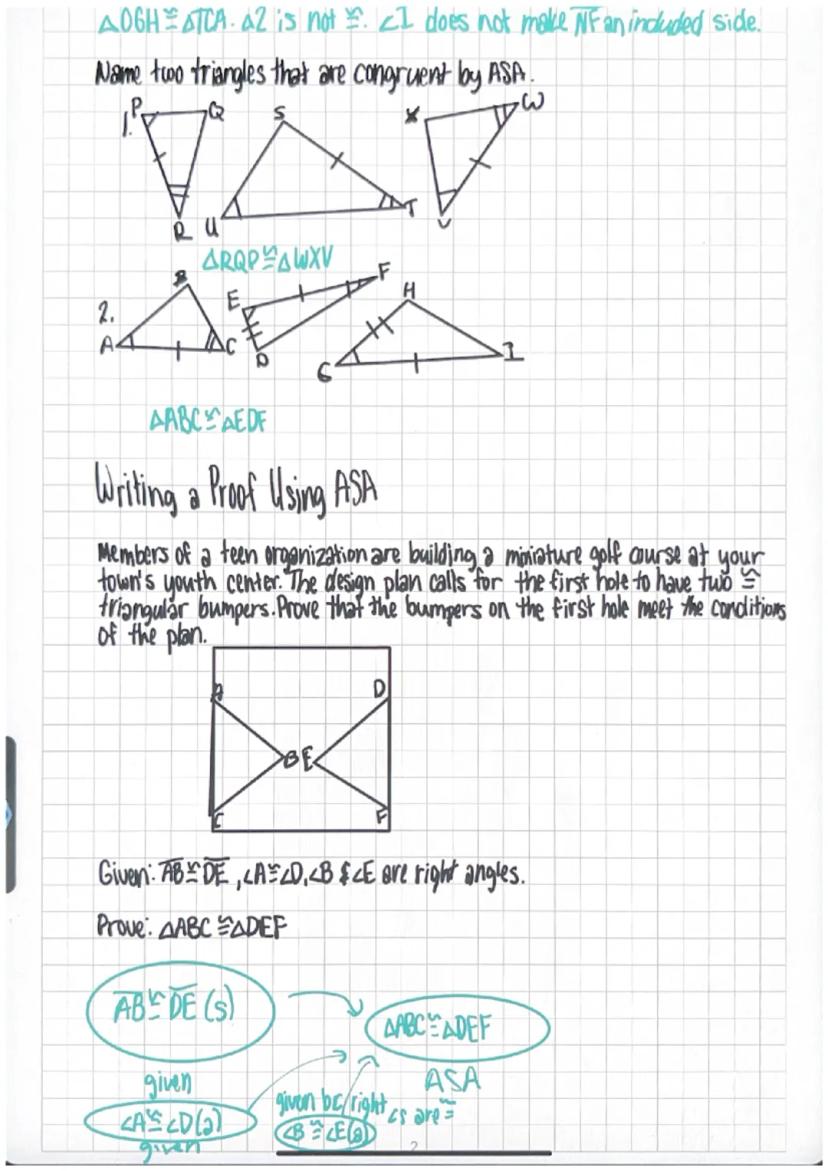 △OGH ≅ △TCA. △2 is not ≅. ∠I does not make NF an included side.
Name two triangles that are congruent by ASA.
1.
P Q S X W
R U T V
△RQP ≅ △WXV
2.
B E F H
A C D G I
△ABC ≅ △EDF
Writing a Proof Using ASA
Members of a teen organization are building a miniature golf course at your
town's youth center. The design plan calls for the first hole to have two ≅
triangular bumpers. Prove that the bumpers on the first hole meet the conditions
of the plan.
A D
B E
C F
Given: AB ≅ DE, ∠A ≅ ∠D, ∠B & ∠E are right angles.
Prove: △ABC ≅ △DEF
AB ≅ DE (s)
△ABC ≅ △DEF
given
ASA
∠A ≅ ∠D (a)
given bc/right ∠s are ≅
∠B ≅ ∠E (a)
given
2